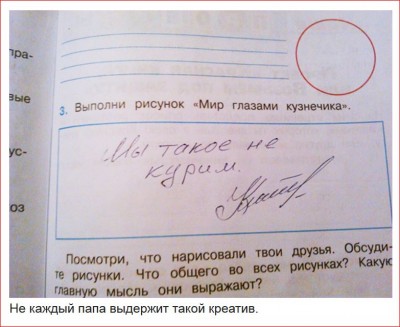 пра-
вые
ус-
воз
3. Выполни рисунок «Мир глазами кузнечика».
Мы такое не
курим.
Посмотри, что нарисовали твои друзья. Обсуди-
те рисунки. Что общего во всех рисунках? Какую
главную мысль они выражают?
Не каждый папа выдержит такой креатив.